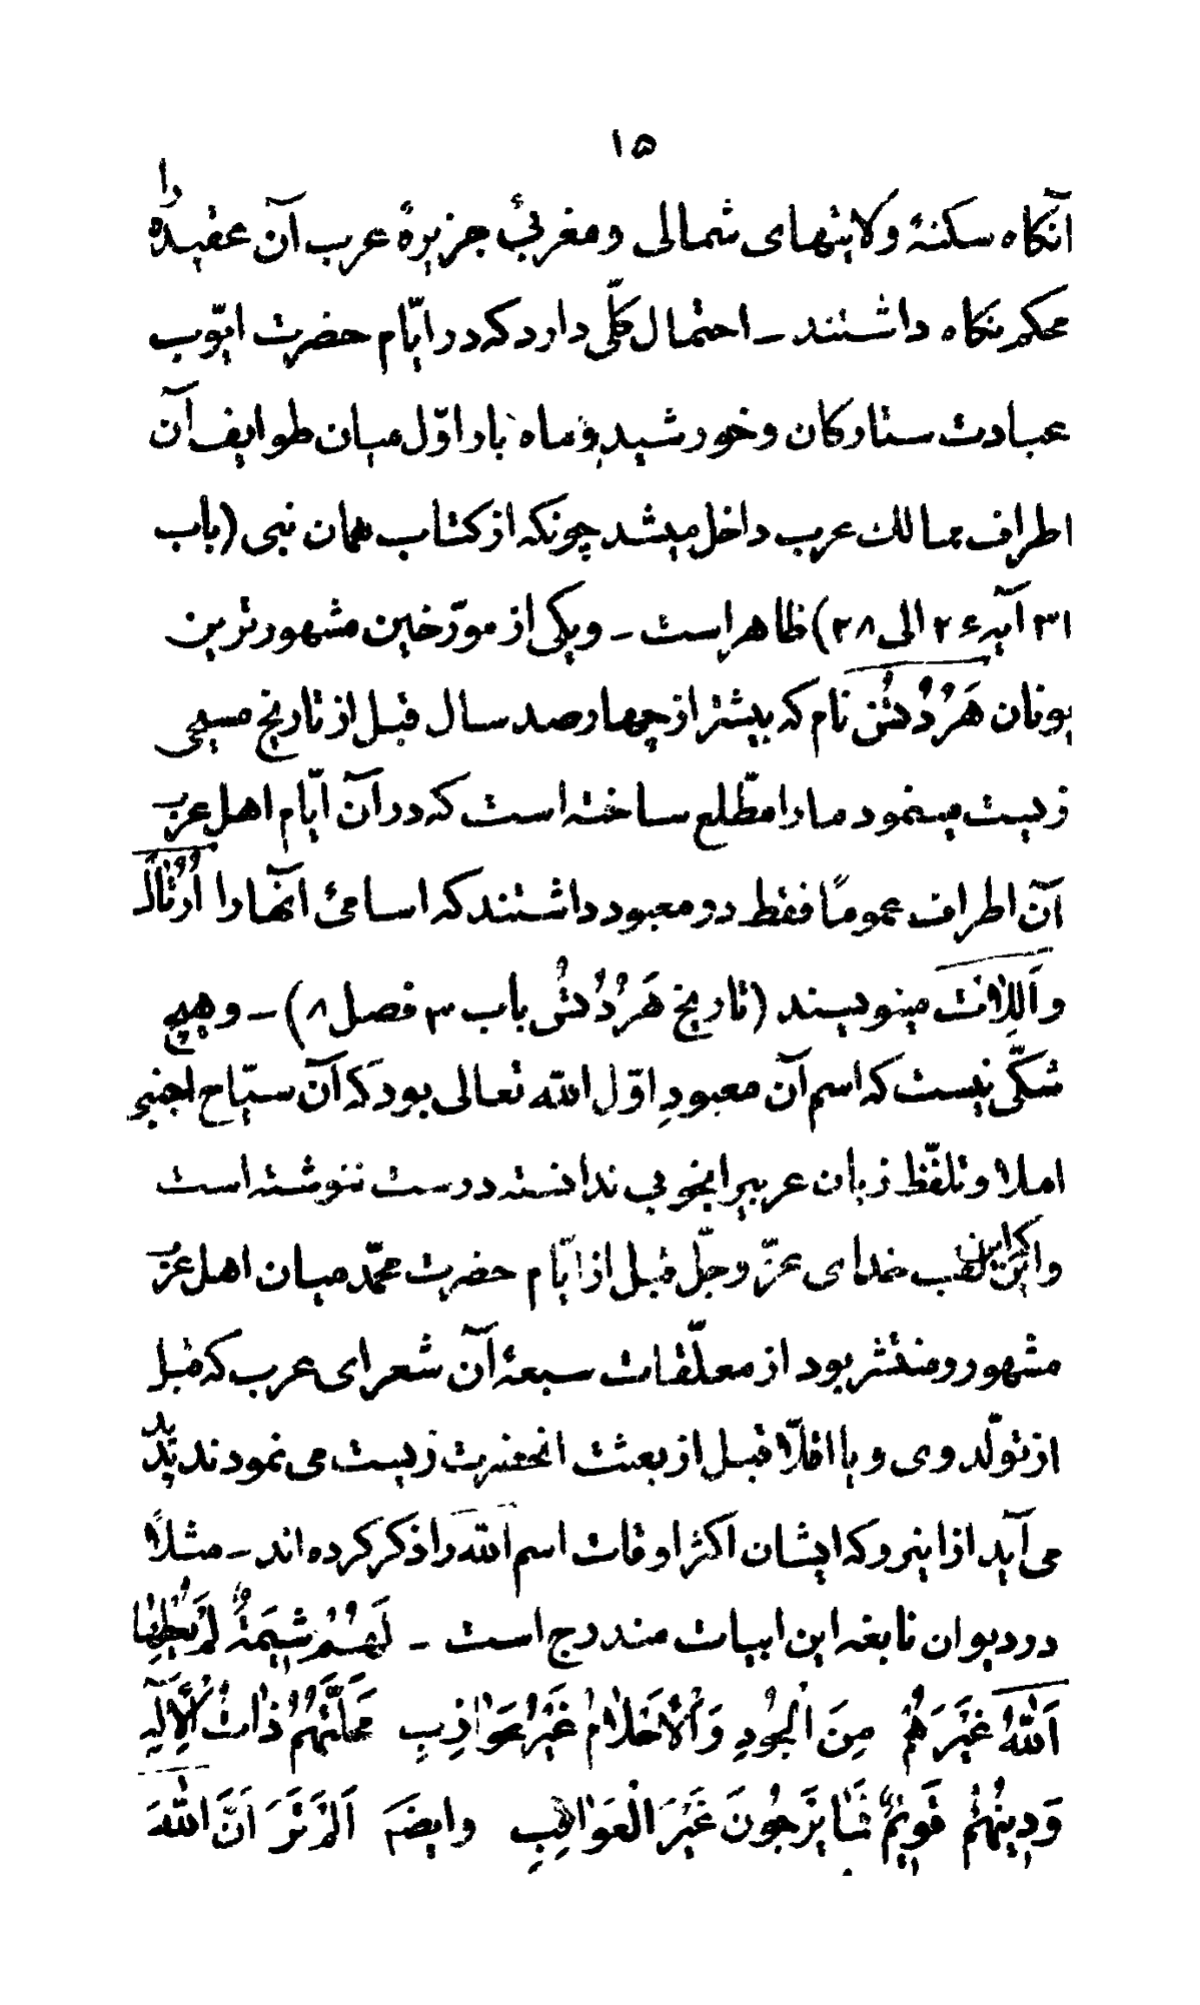 ۱۵
آنکاه سکنهٔ ولایتهای شمالی ومغربیٔ جزیرهٔ عرب آن عقیده را
محکم نکاه داشتند ــ احتمال کلّی دارد که در ایّام حضرت ایّوب
عبادت ستارکان وخورشید وماه بار اوّل میان طوایف آن
اطراف ممالك عرب داخل میشد چونکه از کتاب همان نبی (باب
۳۱ آیه ۲۶ الی ۲۸) ظاهر است ــ ویکی از مورّخین مشهورترین
یونان هَرُدُتُس نام که بیشتر از چهار صد سال قبل از تاریخ مسیحی
زیست مینمود مارا مطّلع ساخته است که در آن ایّام اهل عرب
آن اطراف عمومًا فقط دو معبود داشتند که اسامئ آنها را اُرُتال
واَللِات مینویسند (تاریخ هَرُدُتُس باب ۳ فصل ۸) ــ وهیچ
شکّی نیست که اسم آن معبودِ اوّل الله تعالی بود که آن سیّاح اجنبی
املا وتلفّظ زبان عربیرا بخوبی ندانسته درست ننوشته است
واکر این لقب خدای عزّ وجلّ قبل از ایّام حضرت محمّد میان اهل عرب
مشهور ومنتشر بود از معلّقات سبعهٔ آن شعرای عرب که قبل
از تولّد وی ویا اقلّا قبل از بعثت انحضرت زیست می نمودند پدید
می آید از اینرو که ایشان اکثر اوقات اسم الله را ذکر کرده اند ــ مثلاً
در دیوان نابغه این ابیات مندرج است ــ لَهُمْ شِیمَةٌ لَمْ یُعْطِهَا
اَللّٰهُ غَیْرَهُمْ مِنَ الْجُودِ وَالْأَحْلَامُ غَیْرُ عَوَازِبِ مَحَلَّتُهُمْ ذَاتُ الْأِلٰهِ
وَدِینُهُمْ قَوِیمٌ فَمَا یَرْجُونَ غَیْرَ الْعَوَاقِبِ وایضه اَلَمْ تَرَ اَنَّ اللهَ